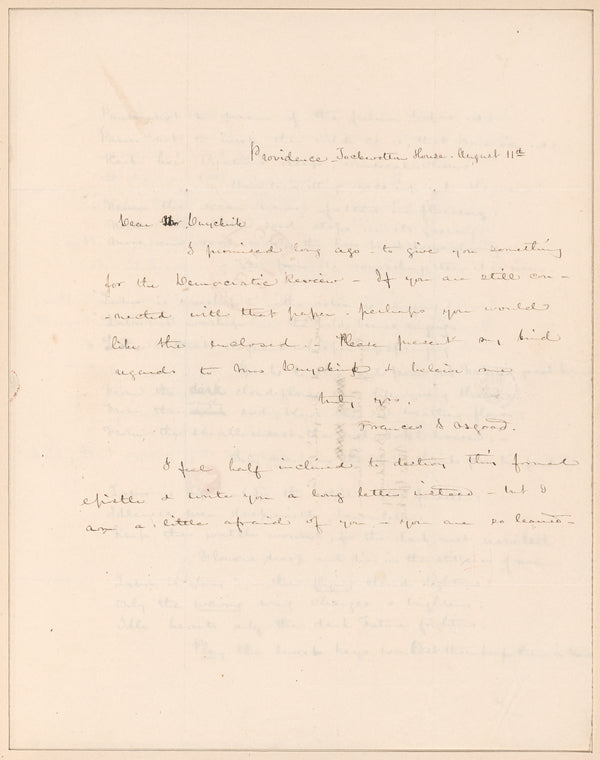 Providence - Tockwotten House. August 11th
Dear Mr Duyckink
I promised long ago - to give you something
for the Democratic Review - If you are still con-
-nected with that paper - perhaps you would
like the enclosed. - Please present my kind
regards to Mrs Duyckink & believe me
truly yrs.
Frances S Osgood.
I feel half inclined to destroy this formal
epistle & write you a long letter instead - but I
am a little afraid of you - you are so learned -